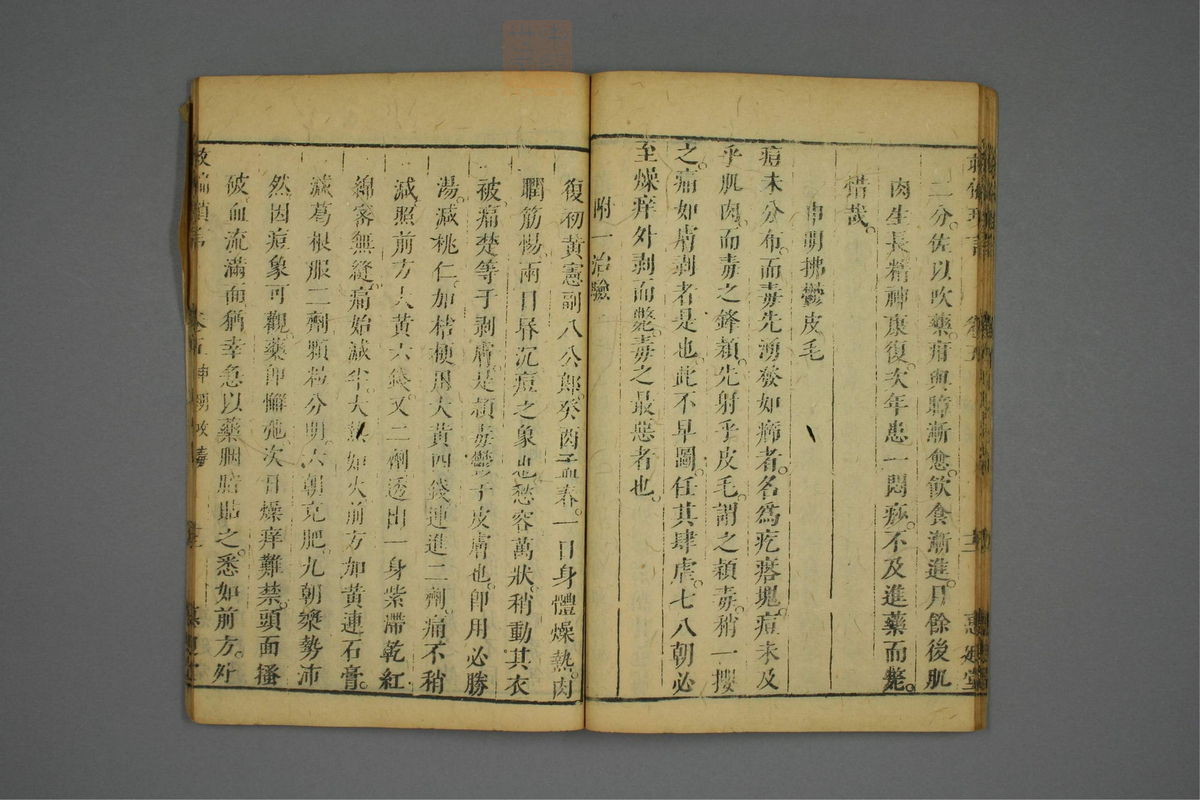 二分。佐以吹藥。疳與瞻漸愈。飲食漸進。月餘後肌
肉生長。精神康復。次年患一悶痧。不及進藥而斃。
惜哉。
申明拂鬱皮毛
痘未分布。而毒先湧發如癤者。名為疙瘩塊。痘未及
乎肌肉。而毒之鋒穎。先射乎皮毛。謂之穎毒。稍一攖
之。痛如膚剥者是也。此不早圖。任其肆虐。七八朝必
至燥痒外剥而斃。毒之最惡者也。
附一治驗
復初黃憲副八公郎。癸酉孟春。一日身體燥熱。肉
瞤筋惕。兩日昏沉。痘之象也。愁容萬狀。稍動其衣
被。痛楚等于剥膚。是穎毒鬱于皮膚也。卽用必勝
湯。減桃仁。加桔梗。用大黃四錢。連進二劑。痛不稍
減。照前方大黃六錢。又二劑。透出一身紫滯乾紅
綿密無縫。痛始減半。大熱如火。前方加黃連石膏。
減葛根。服二劑。顆粒分明。六朝充肥。九朝漿勢沛
然。因痘象可觀。藥卽懈弛。次日燥痒難禁。頭面搔
破。血流滿面。猶幸急以藥胭脂貼之。悉如前方。外
卷五 申明攻毒